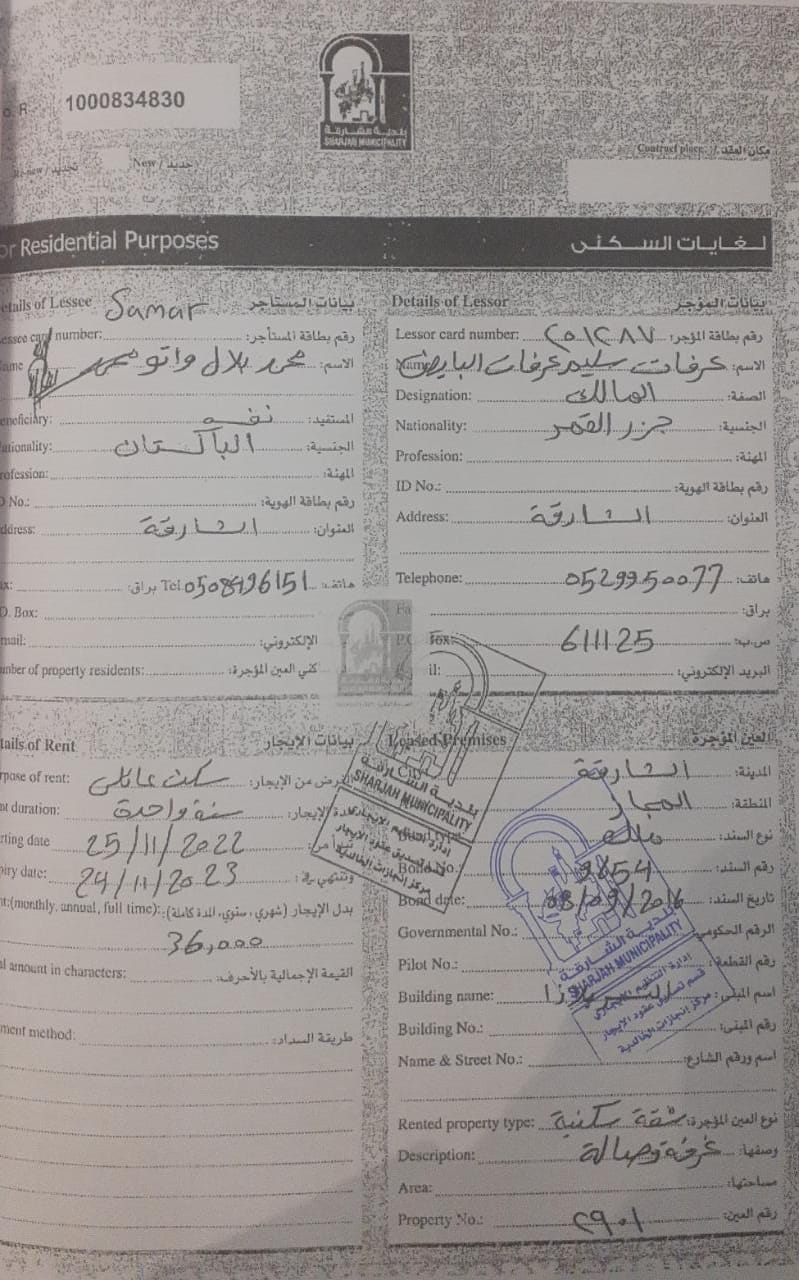 1000834830
بلدية الشارقة
SHARJAH MUNICIPALITY
New / جديد
Contract place: / مكان العقد
or Residential Purposes
لغايات السكني
etails of Lessee Samar بيانات المستأجر
card number: رقم بطاقة المستأجر:
ame محمد بلال واتو محمد الاسم:
eneficiary: نفسه المستفيد:
ationality: الباكستان الجنسية:
rofession: المهنة:
D No.: رقم بطاقة الهوية:
ddress: الشارقة العنوان:
ax: براق: Tel 0508496151 هاتف:
O. Box:
mail: الإلكتروني:
mber of property residents: كني العين المؤجرة:
Details of Lessor بيانات المؤجر
Lessor card number: ٢٥١٢٨٧ رقم بطاقة المؤجر:
Name عرفات سليم عرفات البايض الاسم:
Designation: المالك الصفة:
Nationality: جزر القمر الجنسية:
Profession: المهنة:
ID No.: رقم بطاقة الهوية:
Address: الشارقة العنوان:
Telephone: 0529950077 هاتف:
Fa براق:
P.O Box: 611125 ص.ب:
il: البريد الإلكتروني:
tails of Rent بيانات الإيجار
rpose of rent: سكن عائلي رض من الإيجار:
nt duration: سنة واحدة مدة الإيجار:
rting date 25/11/2022
iry date: 24/11/2023 وتنتهي في:
nt:(monthly, annual, full time): بدل الإيجار (شهري، سنوي، المدة كاملة):
36,000
l amount in characters: القيمة الإجمالية بالأحرف:
ment method: طريقة السداد:
Leased Premises العين المؤجرة
City الشارقة المدينة:
المجاز المنطقة:
Bond type ملك نوع السند:
Bond No. 9854 رقم السند:
Bond date: 08/09/2016 تاريخ السند:
Governmental No.: الرقم الحكومي
Pilot No.: رقم القطعة:
Building name: اسم المبنى:
Building No.: رقم المبنى:
Name & Street No.: اسم ورقم الشارع:
Rented property type: شقة سكنية نوع العين المؤجرة:
Description: غرفة وصالة وصفها:
Area: مساحتها:
Property No.: ٢٩٠١ رقم العين:
بلدية الشارقة
SHARJAH MUNICIPALITY
بلدية الشارقة
SHARJAH MUNICIPALITY
إدارة التنظيم الإيجاري
قسم تصديق عقود الإيجار
مركز إنجازات الخالدية